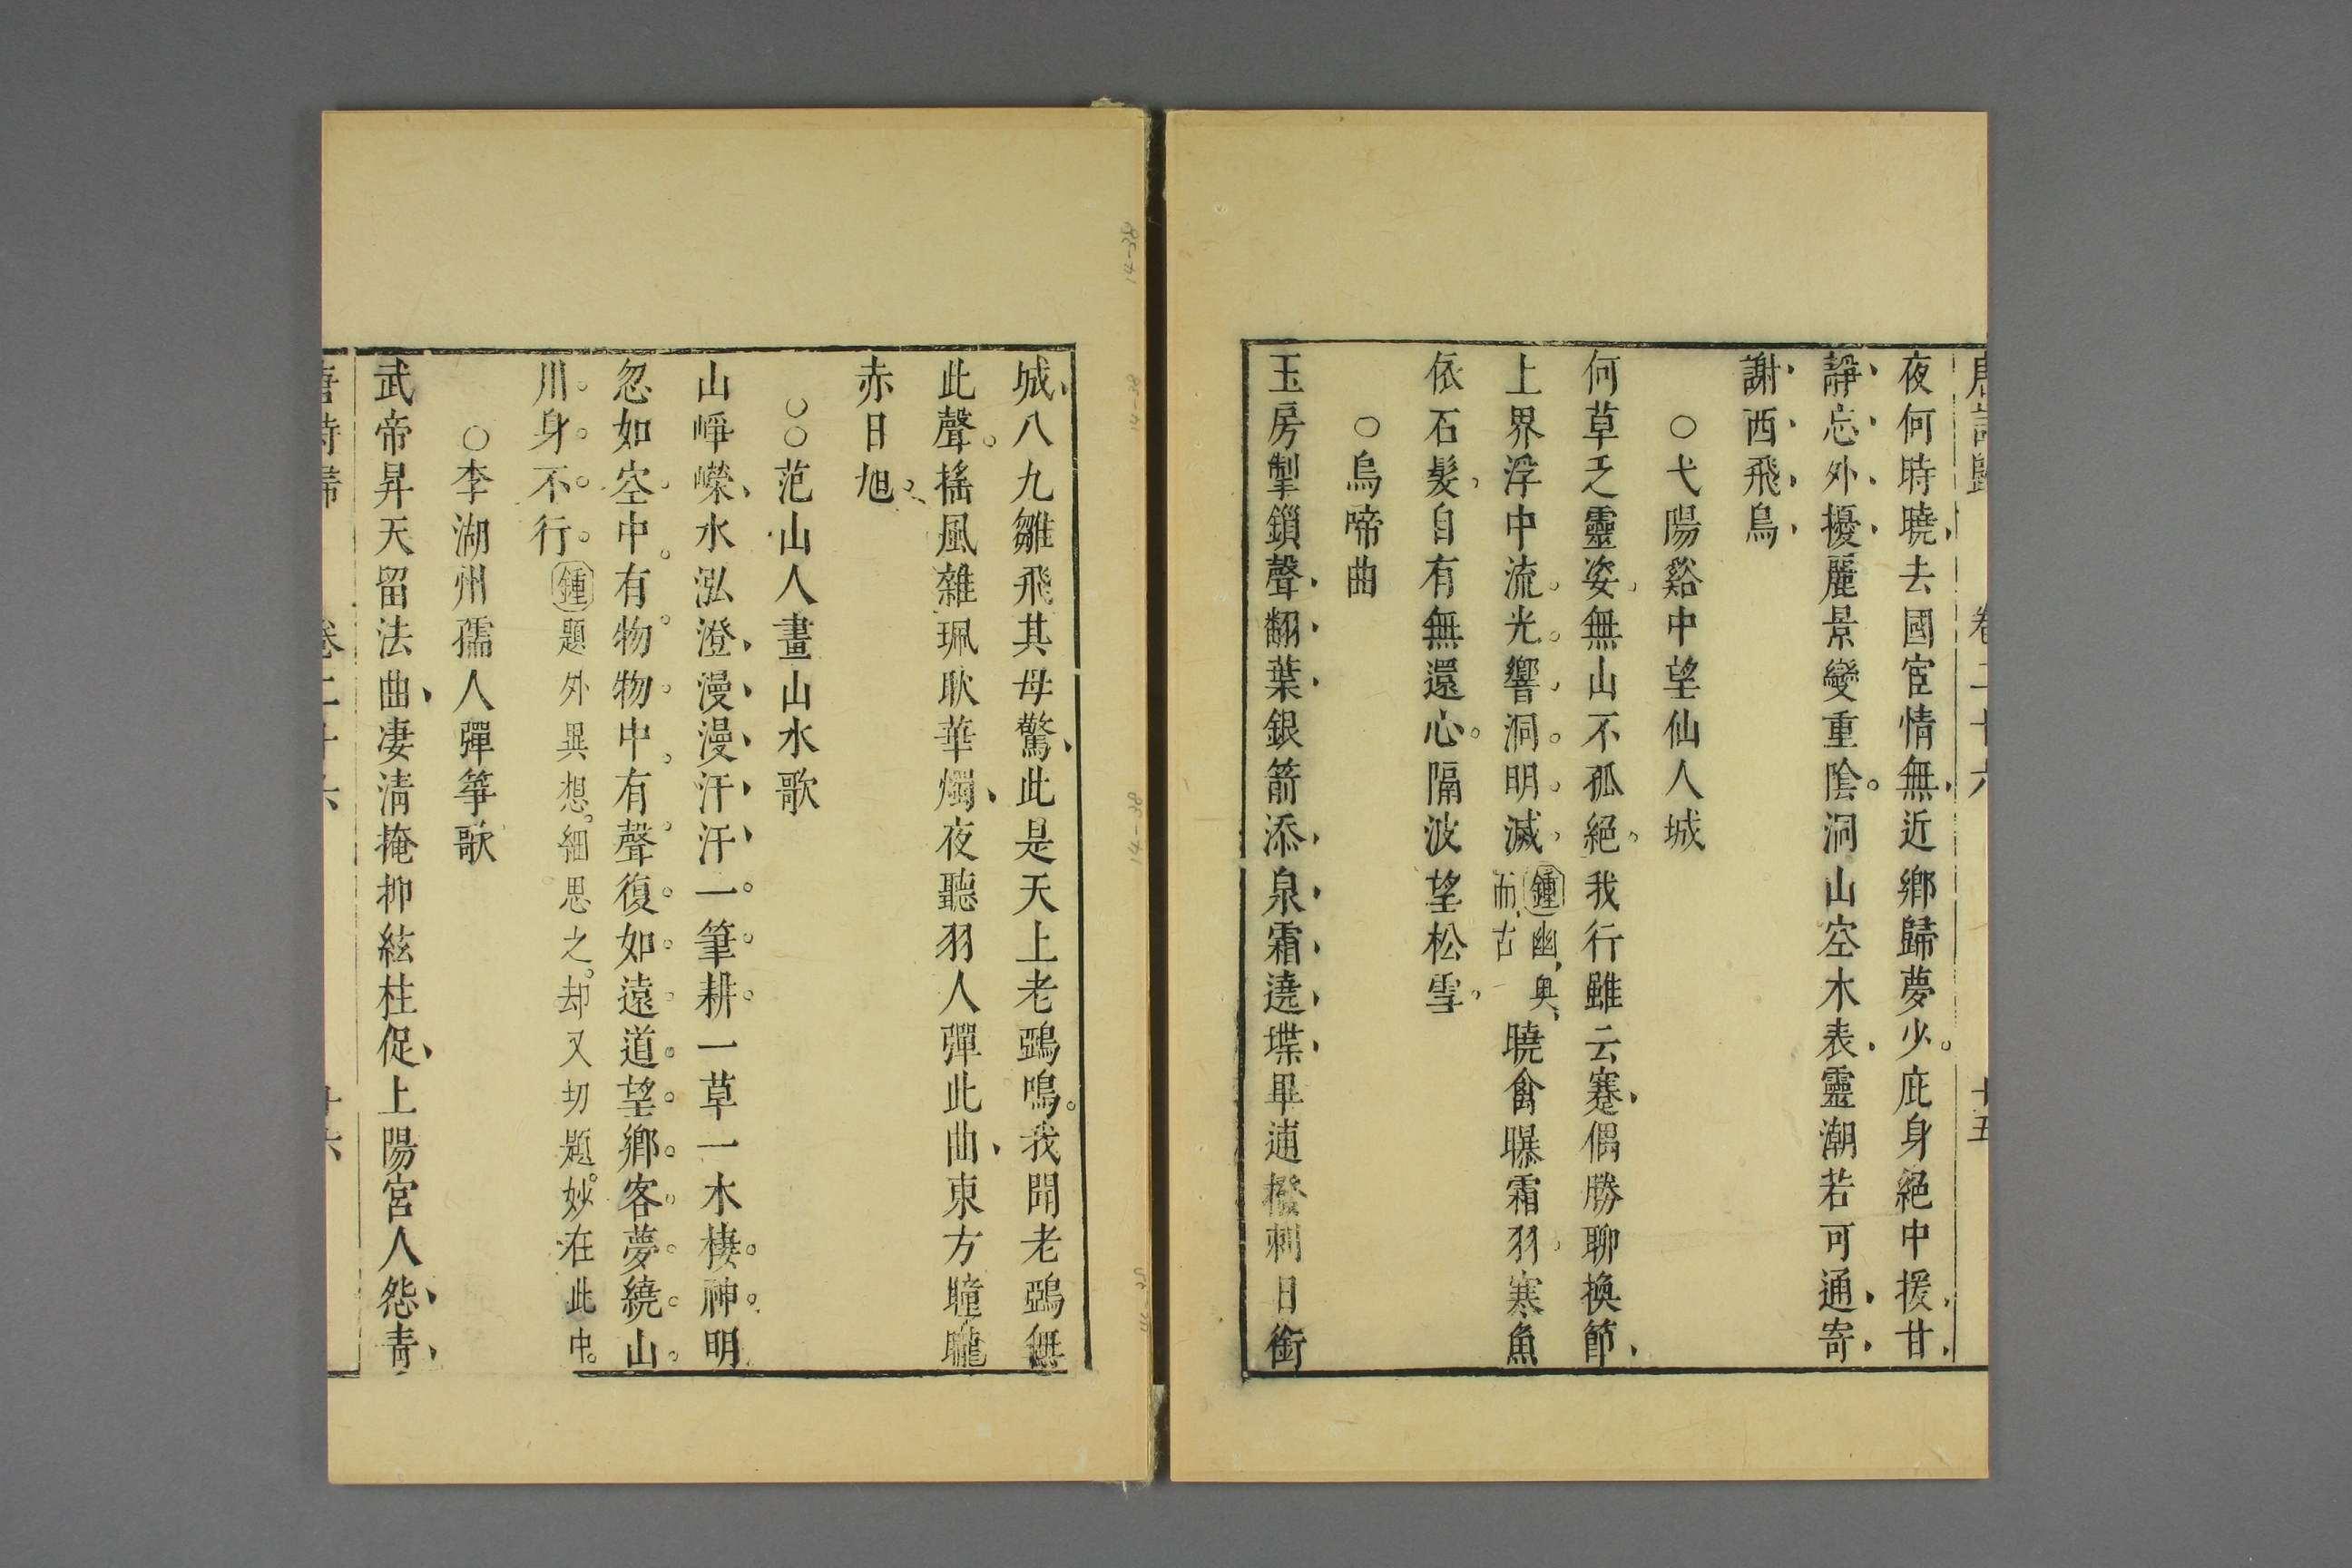 唐詩歸 卷二十六 十五
夜何時曉去國宦情無近鄉歸夢少庇身絕中援甘
靜忘外擾麗景變重陰洞山空木表靈潮若可通寄
謝西飛鳥
○弋陽谿中望仙人城
何草乏靈姿無山不孤絕我行雖云蹇偶勝聊換節
上界浮中流光響洞明滅鍾幽奥而古曉禽曝霜羽寒魚
依石髮自有無還心隔波望松雪
○烏啼曲
玉房掣鎖聲翻葉銀箭添泉霜遶堞畢逋撥剌日銜
城八九雛飛其母驚此是天上老鵶鳴我聞老鵶無
此聲搖風雜珮耿華燭夜聽羽人彈此曲東方曈曨
赤日旭
○○范山人畫山水歌
山崢嶸水泓澄漫漫汗汗一筆耕一草一木棲神明
忽如空中有物物中有聲復如遠道望鄉客夢繞山
川身不行鍾題外異想細思之却又切題妙在此中
○李湖州孺人彈箏歌
武帝昇天留法曲凄清掩抑絃柱促上陽宮人怨青
唐詩歸 卷二十六 十六